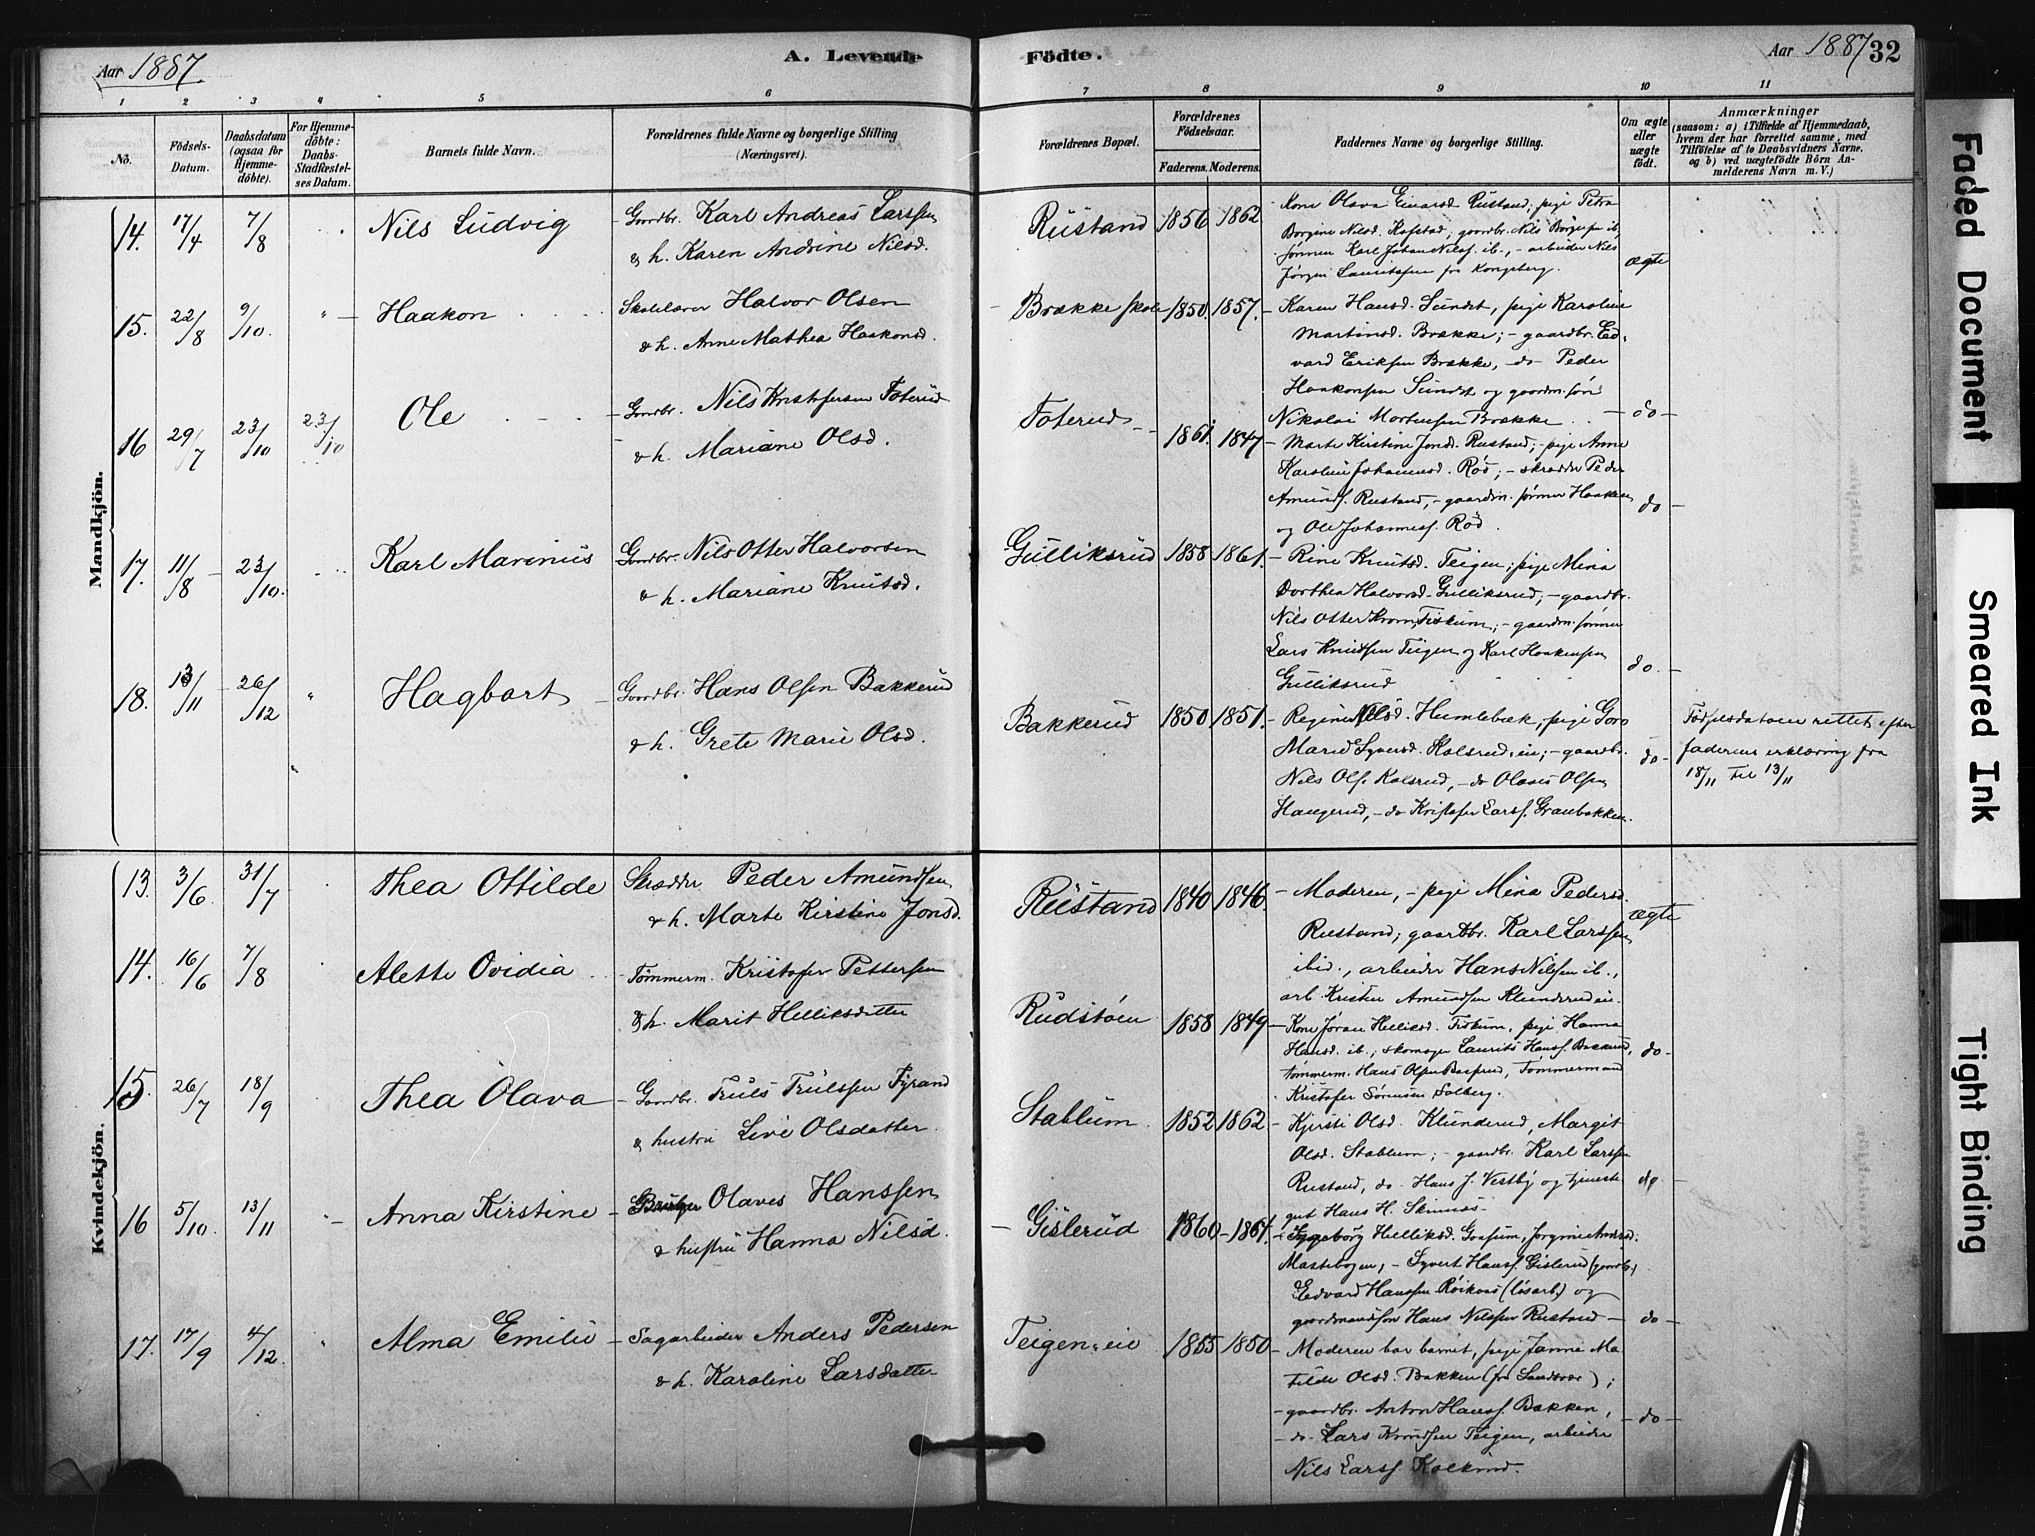 Aar 1887. A. Levende Födte. Aar 1887 32
1 2 3 4 5 6 7 8 9 10 11
No.
Födsels-
Datum.
Daabsdatum
(ogsaa for
Hjemme-
döbte).
For Hjemme-
döbte:
Daabs-
Stadfæstel-
ses Datum.
Barnets fulde Navn.
Forældrenes fulde Navne og borgerlige Stilling
(Næringsvei).
Forældrenes Bopæl.
Forældrenes
Födselsaar.
Faderens. Moderens.
Faddernes Navne og borgerlige Stilling.
Om ægte
eller
uægte
födt.
Anmærkninger
(saasom: a) i Tilfælde af Hjemmedaab,
hvem der har forrettet samme, med
Tilföielse af to Daabsvidners Navne,
og b) ved uægtefödte Börn An-
melderens Navn m. V.)
Mandkjön.
14. 17/4 7/8 Nils Ludvig
Gaardbr. Karl Andreas Larssen
& h. Karen Andrine Nilsd.
Rustand 1856 1862
Kone Olava Einarsd. Rustand, pige Petra
Borgine Nilsd. Kopstad, gaardbr. Nils Börgesen ib,
sönnen Karl Johan Nilss. ib., - arbeider Nils
Jörgen Lauritssen fra Kongsberg.
ægte
15. 22/8 9/10. Haakon
Skolelærer Halvor Olsen
& h. Anne Mathea Haakonsd.
Brække skole 1850. 1857.
- Karen Hansd. Sundet, pige Karoline
Martinsd. Brække; - gaardbr. Ed-
vard Eriksen Brække, do Peder
Haakonsen Sundet og gaardm. sön
Nikolai Mortensen Brække
do
16 29/7 23/10 23/10 Ole
Gaardbr. Nils Kristofersen Foterud
& h. Mariane Olsd.
Foterud 1861. 1847
- Marte Kirstine Jonsd. Rustand; - pige Anne
Karoline Johannesd. Röd; - skrædder Peder
Amunds. Rustand, - gaardm. sönner Haaken
og Ole Johanness. Röd.
do
17. 11/8 23/10. Karl Marinius
Gaardbr. Nils Otter Halvorsen
& h. Mariane Knutsd.
Gulliksrud 1858 1861.
- Rine Knutsd. Teigen; pige Mina
Dorthea Halvorsd. Gulliksrud; - gaardbr.
Nils Otter Fiskum; - gaardm. sönner
Lars Knudsen Teigen og Karl Haakensen
Gulliksrud
do.
18. 13/11 26/12 Hagbart
Gaardbr. Hans Olsen Bakkerud
& h. Grete Marie Olsd.
Bakkerud 1850 1851.
- Regine Nilsd. Humlebæk, pige Goro
Marie Syversd. Kolsrud. ; - gaardbr.
Nils Ols. Kolsrud, - do Olaves Olsen
Haugerud, - do Kristofer Larss. Granbakken.
do
Födselsdatoen rettet efter
faderens erklæring fra
18/11 til 13/11
Kvindekjön.
13. 3/6. 31/7 Thea Ottilde
Skrædder Peder Amundsen
& h. Marte Kirstine Jonsd.
Rustand 1840 1846.
- Moderen, - pige Mina Pedersd.
Rustand; gaardbr. Karl Larssen
ibid., arbeider Hans Nilsen ib.,
arb. Kristen Amundsen Klunderud
ægte
14. 16/6 7/8 Alette Ovidia
Tömmerm. Kristofer Pettersen
& h. Marit Helliksdatter
Rudstöen 1858 1849
- Kone Jöran Helliksd. Fiskum, pige Hanna
Hansd. ib.; skomager Laurits Hanss. Bakkerud,
tömmerm. Hans Olsen , Tömmermand
Kristofer Sörensen Solberg.
do
15. 26/7 18/9 Thea Olava
Gaardbr. Truls Trulssen Fyrand
& hustru Live Olsdatter
Stablum 1852 1862
- Kjersti Olsd. Klunderud, Margit
Olsd. Stablum; - gaardbr. Karl Larssen
Rustand, do Hans J. Vestby og tjeneste
gut Hans H. Skinnes
do
16 5/10. 13/11 Anna Kirstine
Olaves Hanssen
& hustru Hanna Nilsd
Gislerud 1860 - 1864.
- Ingeborg Helliksd. Gaasum, Jorgine Andersd.
Mastebogen, - Syvert Hanss. Gislerud (gaardb.)
Edvard Hanssen Röikaas (lösarb) og
gaardmandssön Hans Nilssen Rustand
do
17. 17/9 4/12. Alma Emilie
Sagarbeider Anders Pedersen
& h. Karoline Larsdatter
Teigen-eie 1855 1850
- Moderen bar barnet, pige Janna Ma-
tilde Olsd. Bakken (fra Sandsvær);
- gaardbr. Anton Hanss. Bakken,
- do Lars Knudsen Teigen, arbeider
Nils Larss.
do
Faded Document
Smeared Ink
Tight Binding